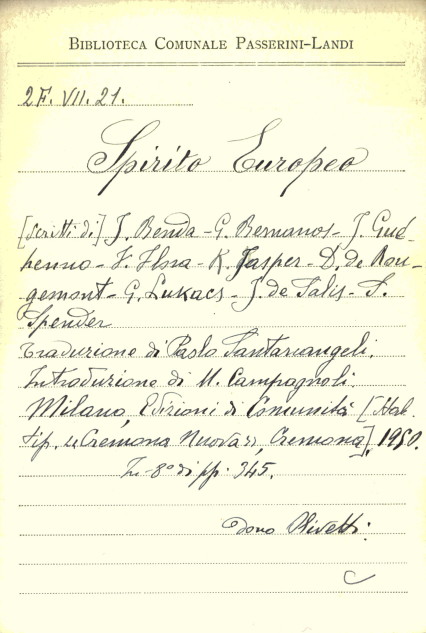 BIBLIOTECA COMUNALE PASSERINI-LANDI
2F. VII. 21.
Spirito Europeo
[Scritti di] J. Benda - G. Bernanos - J. Gué-
henno - F. Flora - K. Jasper - D. de Rou-
gemont - G. Lukacs - J. de Salis - S.
Spender
Traduzione di Paolo Santarcangeli.
Introduzione di U. Campagnoli.
Milano, Edizioni di Comunità [Stab.
tip. "Cremona Nuova", Cremona], 1950.
In-8° di pp. 345.
Dono Olivetti.
C